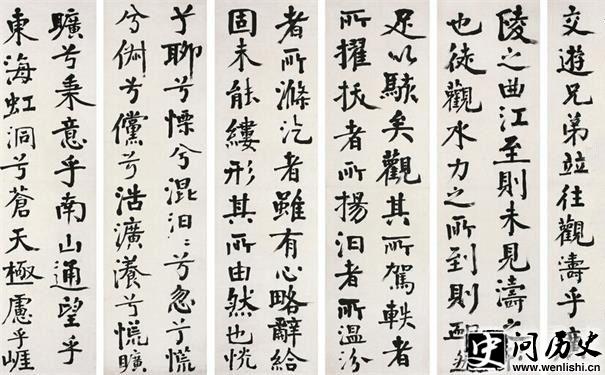 交遊兄弟並往觀濤乎廣
陵之曲江至則未見濤之
也徒觀水力之所到則卹然
足以駭矣觀其所駕軼者
所擢拔者所揚汨者所溫汾
者所滌汔者雖有心略辭給
固未能縷形其所由然也怳
兮聊兮慄兮混汩〻兮忽兮慌
兮俶兮儻兮浩瀇瀁兮慌曠
曠兮秉意乎南山通望乎
東海虹洞兮蒼天極慮乎崕
问历史
www.wenlishi.cn